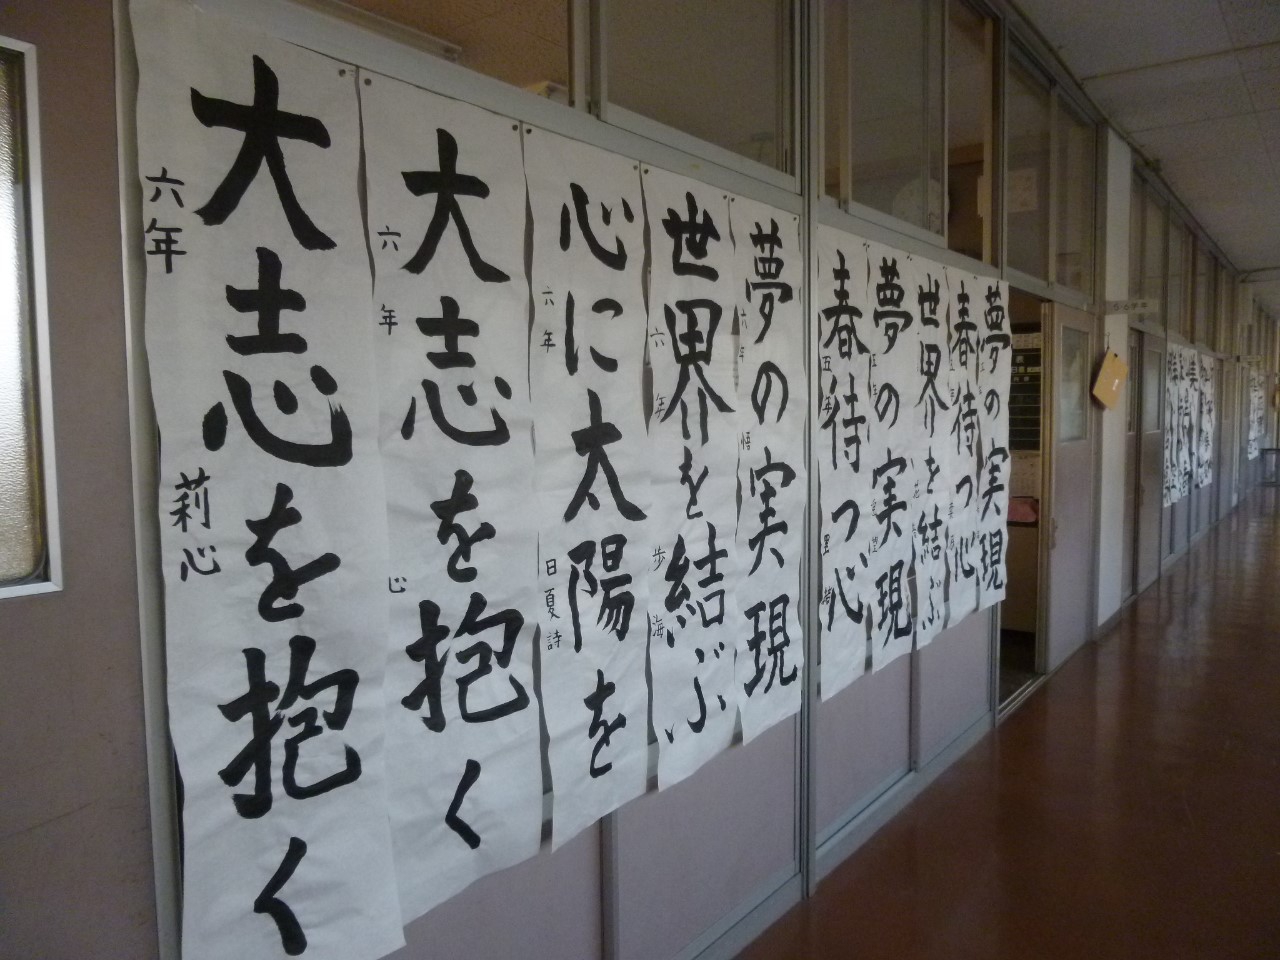 大志を抱く
六年 莉心
大志を抱く
六年 心
心に太陽を
六年 日夏詩
世界を結ぶ
六年 歩海
夢の実現
六年 悟
春待つ心
五年 里緒
夢の実現
五年
世界を結ぶ
春待つ心
夢の実現